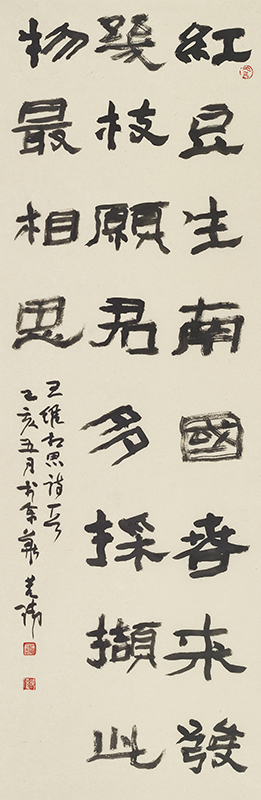 紅豆生南國春來發
幾枝願君多採擷此
物最相思
王維相思詩一首
乙亥五月於京華